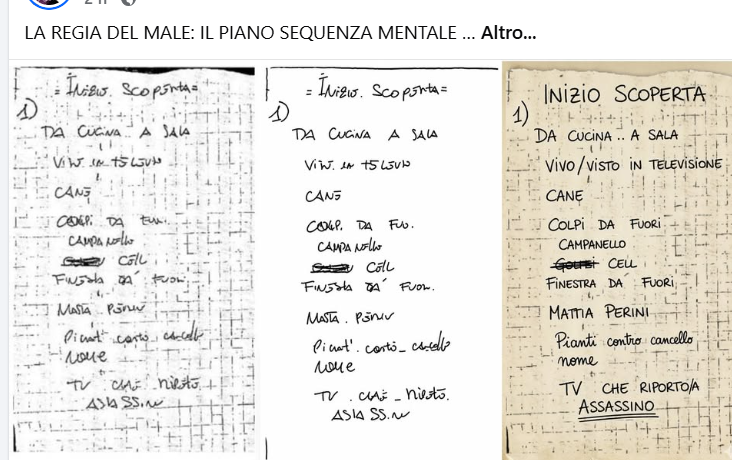 2 h
LA REGIA DEL MALE: IL PIANO SEQUENZA MENTALE ... Altro...
= Inizio. Scoperta=
1)
DA CUCINA .. A SALA
VIW. in
CANE
COLPI DA
CAMPANELLO
CELL
FINESTA DA' FUORI.
MATTIA PERINI
Piant. contro cancello
nome
TV CHE
ASSASSIN
= Inizio. Scoperta=
1)
DA CUCINA A SALA
VIW. in
CANE
COLP. DA FUO.
CAMPANELLO
CELL
FINESTA DA' FUOR.
MATTIA . PERINI
Piant'. contro_ cancello
nome
TV . CHE _
ASSASSIN
INIZIO SCOPERTA
1)
DA CUCINA .. A SALA
VIVO/VISTO IN TELEVISIONE
CANE
COLPI DA FUORI
CAMPANELLO
CELL
FINESTRA DA' FUORI
MATTIA PERINI
Pianti contro cancello
nome
TV CHE RIPORTO/A
ASSASSINO